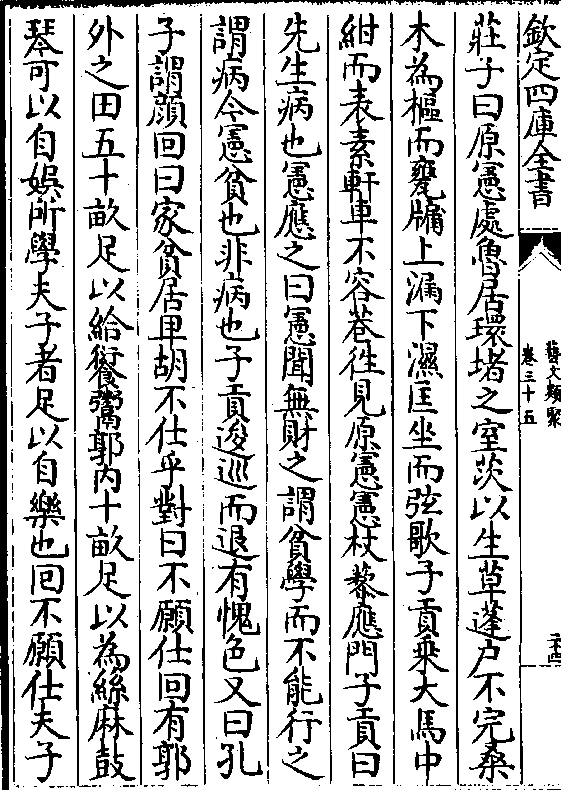 欽定四庫全書
藝文類聚
卷三十五
莊子曰原憲處魯居環堵之室茨以生草蓬户不完桑
木為樞而甕牖上漏下濕匡坐而弦歌子貢乗大馬中
紺而表素軒車不容巷徃見原憲憲杖藜應門子貢曰
先生病也憲應之曰憲聞無財之謂貧學而不能行之
謂病今憲貧也非病也子貢逡巡而退有愧色又曰孔
子謂顔回曰家貧居卑胡不仕乎對曰不願仕回有郭
外之田五十畝足以給饘鬻郭内十畝足以為絲麻鼓
琴可以自娯所學夫子者足以自樂也回不願仕夫子